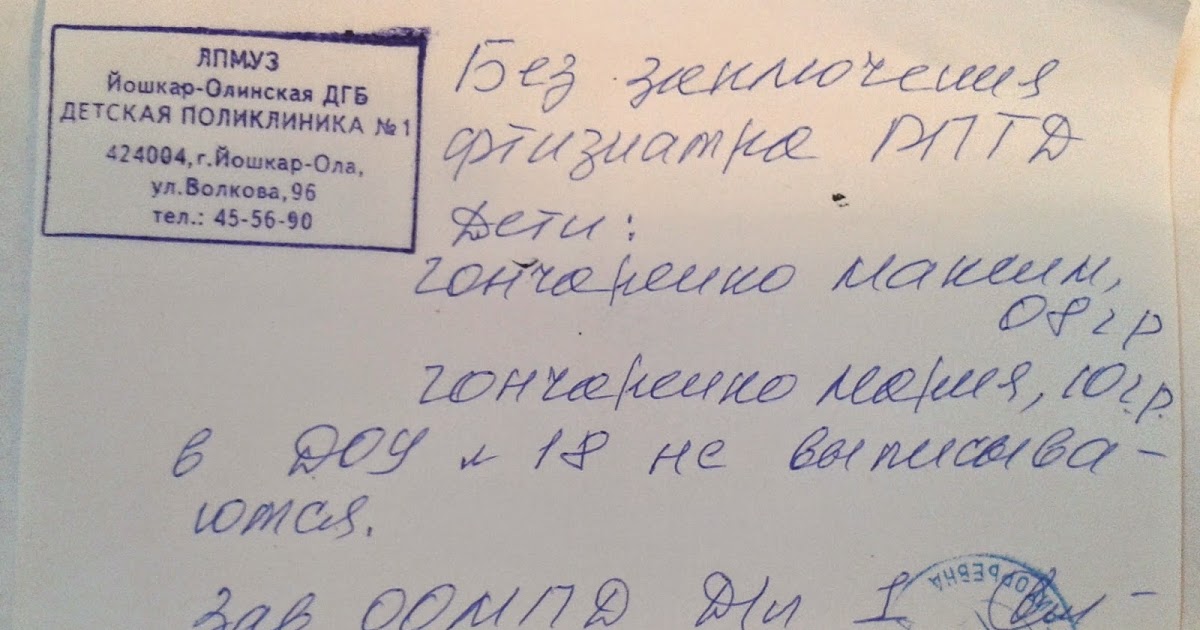 ЛПМУЗ
Йошкар-Олинская ДГБ
ДЕТСКАЯ ПОЛИКЛИНИКА №1
424004, г.Йошкар-Ола,
ул.Волкова,96
тел.: 45-56-90
Без заключения
фтизиатра РПТД
Дети:
Гончаренко Максим,
08 гр
Гончаренко Мария, 10 г.р.
в ДОУ № 18 не выписыва-
ются.
Зав ООМПД Д/п 1
ГОРЬЕВНА